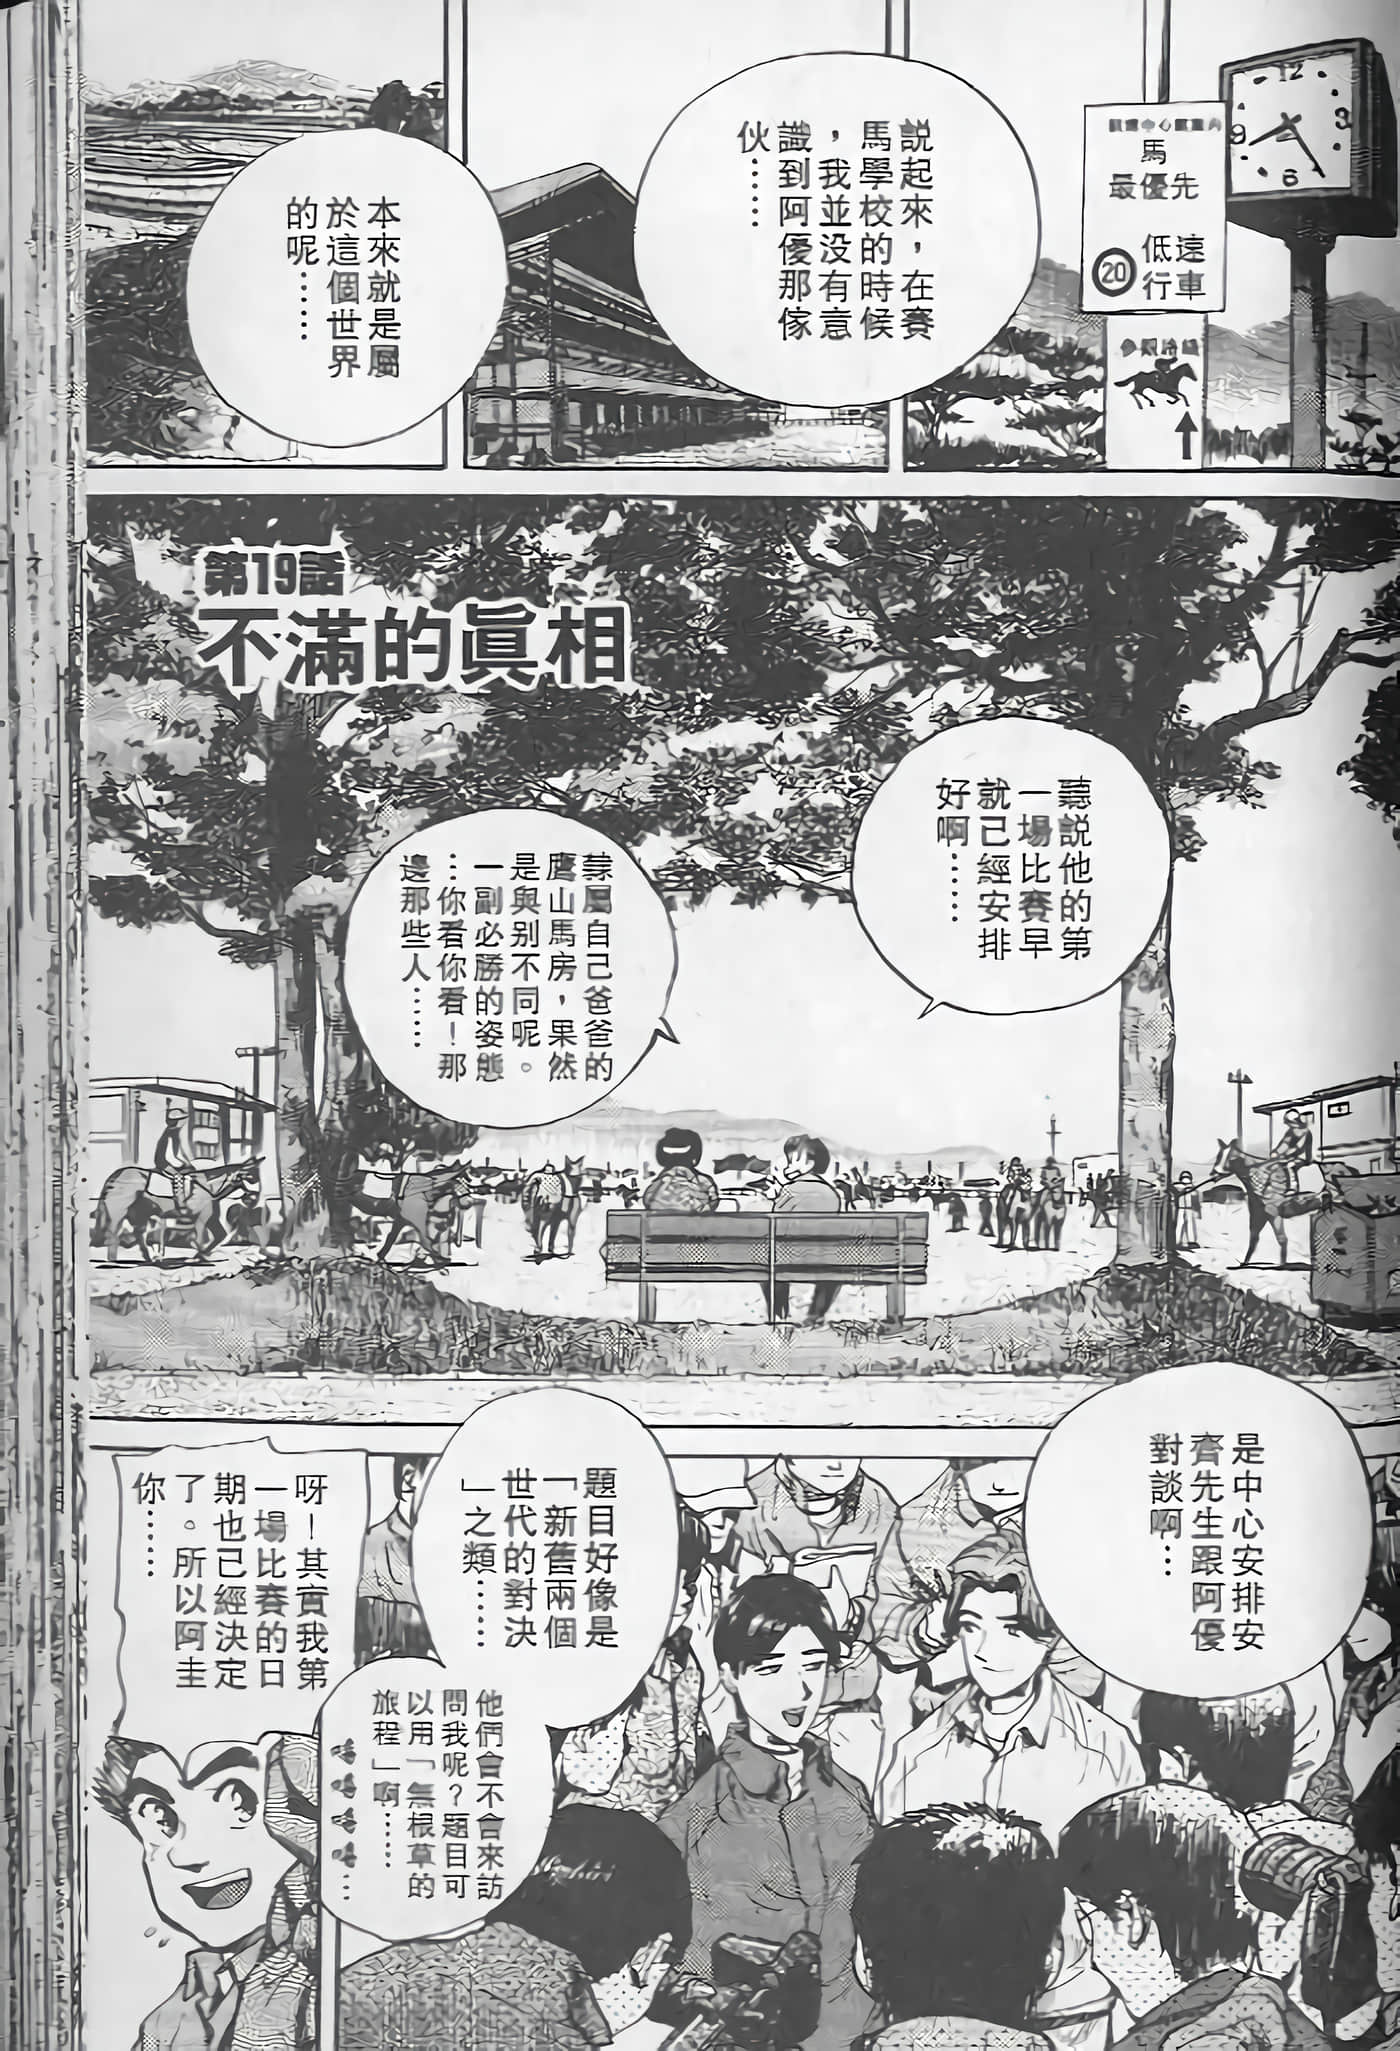 12
3
6
9
馬
最優先
低速
20
行車
説起來，在賽
馬學校的時候
，我並没有意
識到阿優那傢
伙……
本來就是屬
於這個世界
的呢……
第19話
不滿的眞相
聽説他的第
一場比賽早
就已經安排
好啊……
隷屬自己爸爸的
鷹山馬房，果然
是與別不同呢。
一副必勝的姿態
…你看你看！那
邊那些人……
是中心安排安
齊先生跟阿優
對談啊…
題目好像是
「新舊兩個
世代的對決
」之類……
他們會不會來訪
問我呢？題目可
以用「無根草的
旅程」啊……
呀！其實我第
一場比賽的日
期也已經決定
了。所以阿圭
你……